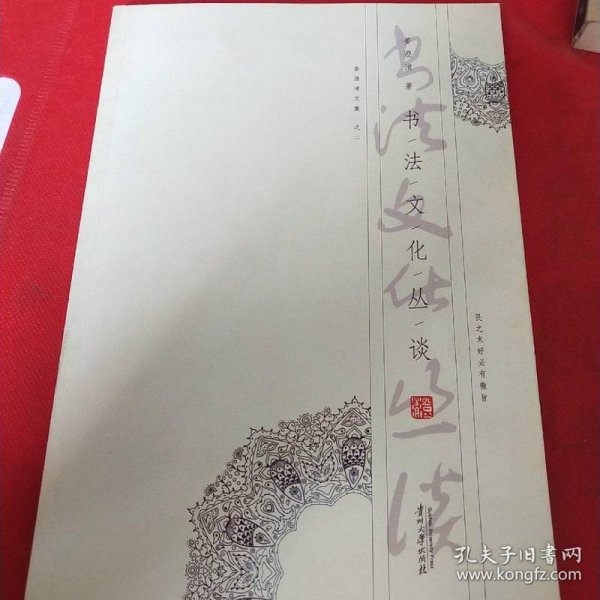 姜澄清著
书法文化丛谈
书法文化丛谈
姜澄清文集 之二
民之术好必有微旨
贵州大学出版社
Guizhou University Press
孔夫子旧书网
www.kongfz.com